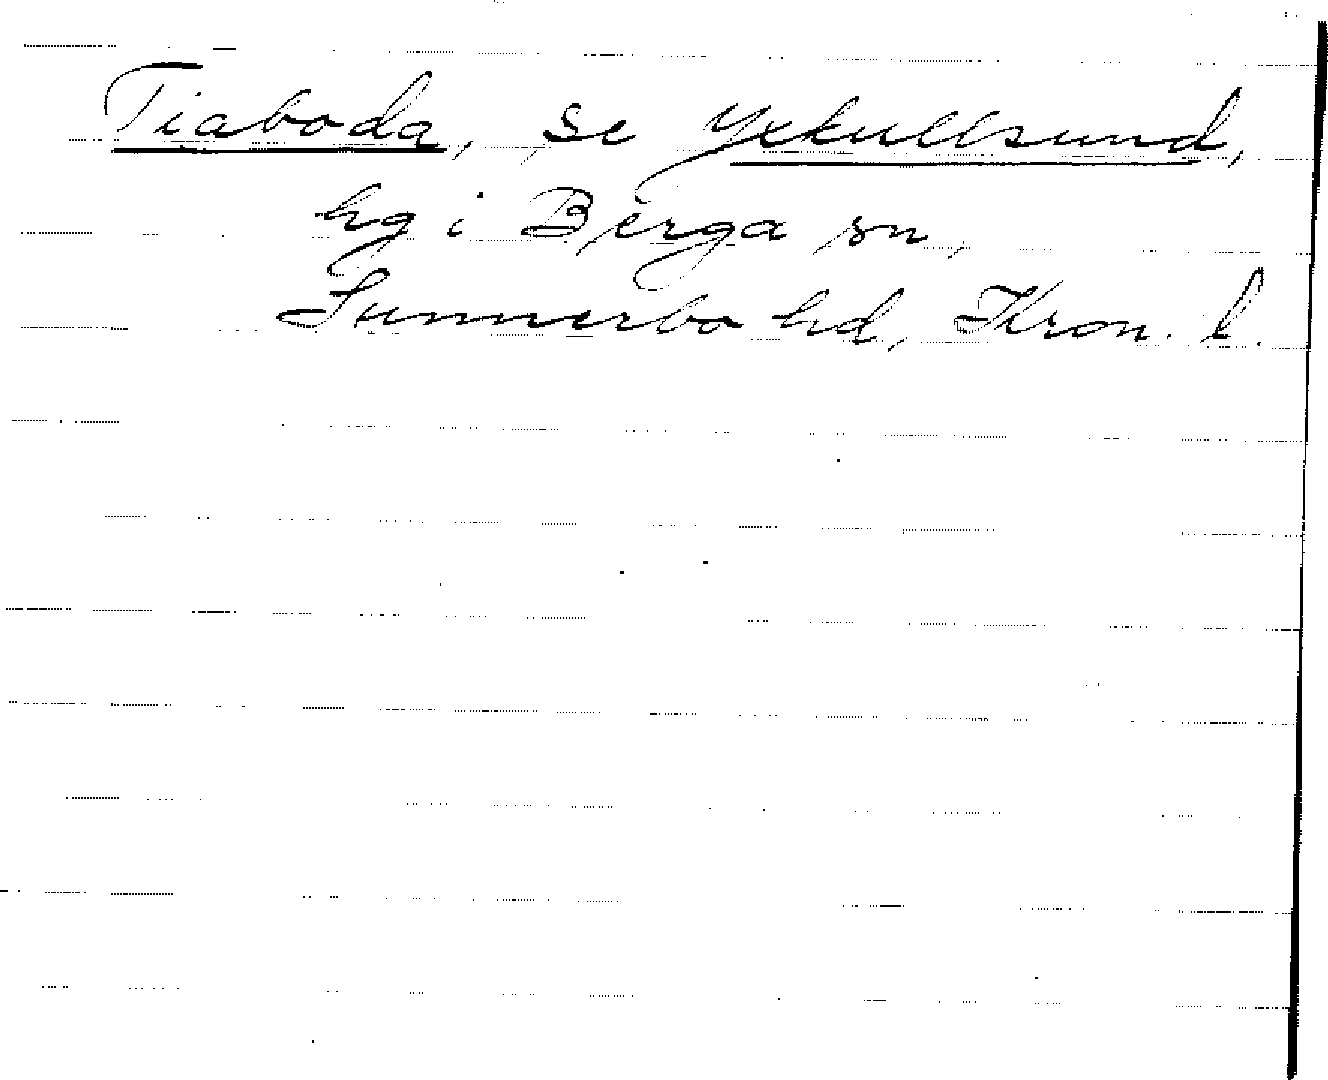 Tiaboda, se Yxkullsund,
hg i Berga sn,
Sunnerbo hd, Kron. l.